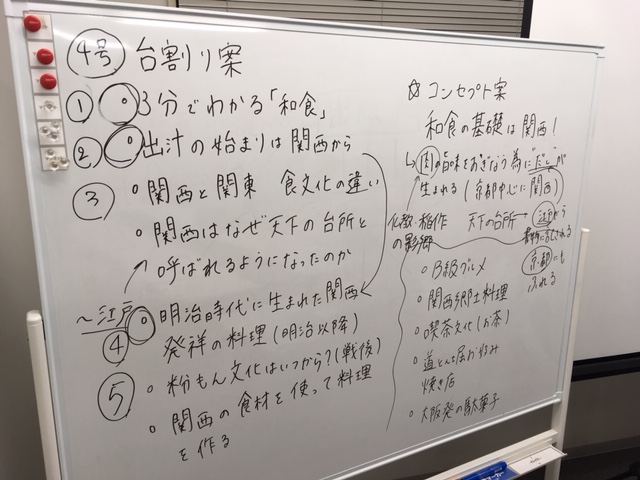 ④号 台割り案
① 3分でわかる「和食」
② 出汁の始まりは関西から
③ 関西と関東 食文化の違い
関西はなぜ天下の台所と
呼ばれるようになったのか
〜江戸
④ 明治時代に生まれた関西
発祥の料理(明治以降)
⑤ 粉もん文化はいつから?(戦後)
関西の食材を使って料理
を作る
☆ コンセプト案
和食の基礎は関西!
肉の旨味をおぎなう為に"だし"が
生まれる(京都中心に関西)
仏教・稲作
の影郷
天下の台所→江戸から
京都にも
ふれる
B級グルメ
関西郷土料理
喫茶文化(お茶)
道とん堀お好み
焼き店
大阪発の駄菓子